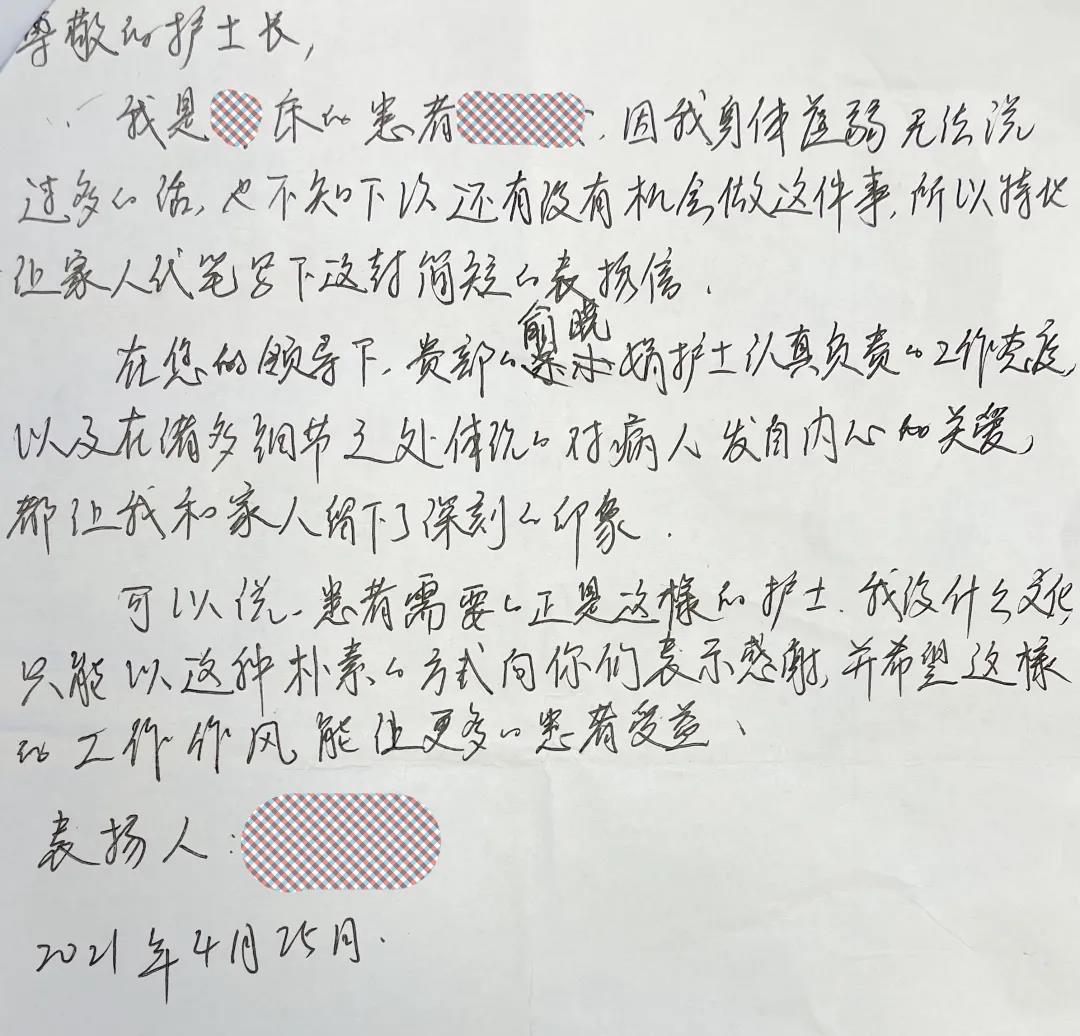 尊敬的护士长,
我是 床的患者 ,因我身体虚弱无法说
过多的话,也不知下次还有没有机会做这件事,所以特地
让家人代笔写下这封简短的表扬信.
在您的领导下,贵部的俞晓娟护士认真负责的工作态度,
以及在诸多细节之处体现的对病人发自内心的关爱,
都让我和家人留下了深刻的印象.
可以说,患者需要的正是这樣的护士.我没什么文化,
只能以这种朴素的方式向你们表示感谢,并希望这樣
的工作作风,能让更多的患者受益、
表扬人:
2021年4月25日.